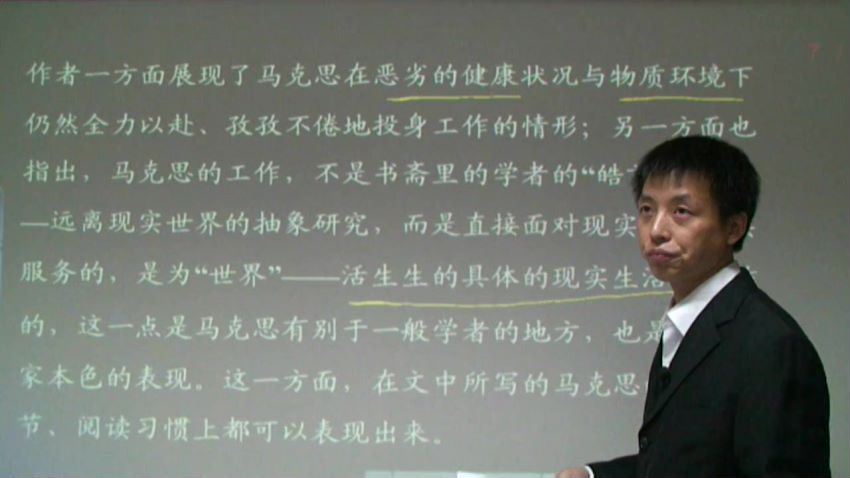 作者一方面展现了马克思在恶劣的健康状况与物质环境下
仍然全力以赴、孜孜不倦地投身工作的情形；另一方面也
指出，马克思的工作，不是书斋里的学者的“皓
—远离现实世界的抽象研究，而是直接面对现实
服务的，是为“世界”——活生生的具体的现实生活
的，这一点是马克思有别于一般学者的地方，也是
家本色的表现。这一方面，在文中所写的马克思
节、阅读习惯上都可以表现出来。